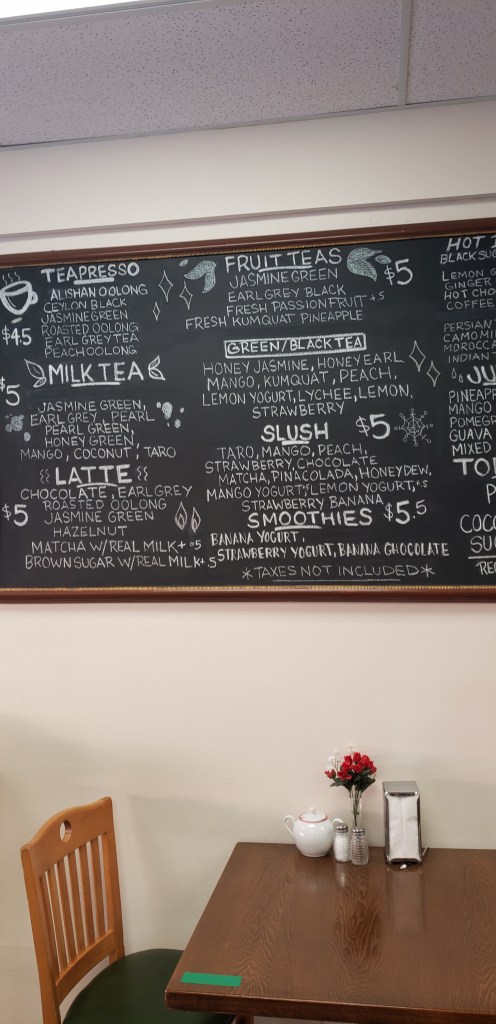 TEAPRESSO
ALISHAN OOLONG
CEYLON BLACK
JASMINE GREEN
$4.5
ROASTED OOLONG
EARL GREY TEA
PEACH OOLONG
MILK TEA
$5
JASMINE GREEN,
EARL GREY, PEARL
PEARL GREEN,
HONEY GREEN,
MANGO, COCONUT, TARO
LATTE
CHOCOLATE, EARL GREY
$5
ROASTED OOLONG
JASMINE GREEN
HAZELNUT
MATCHA W/REAL MILK+.5
BROWN SUGAR W/REAL MILK+.5
FRUIT TEAS
$5
JASMINE GREEN
EARL GREY BLACK
FRESH PASSION FRUIT +.5
FRESH KUMQUAT PINEAPPLE
GREEN/BLACK TEA
HONEY JASMINE, HONEY EARL
MANGO, KUMQUAT, PEACH,
LEMON YOGURT, LYCHEE, LEMON,
STRAWBERRY
SLUSH
$5
TARO, MANGO, PEACH,
STRAWBERRY, CHOCOLATE
MATCHA, PINACOLADA, HONEYDEW,
MANGO YOGURT, LEMON YOGURT, +.5
STRAWBERRY BANANA
SMOOTHIES $5.5
BANANA YOGURT,
STRAWBERRY YOGURT, BANANA CHOCOLATE
*TAXES NOT INCLUDED*
HOT
BLACK SUG
LEMON
GINGER
HOT CHO
COFFEE
PERSIAN
CAMOM
MOROCCA
INDIAN
JU
PINEAPP
MANGO
POMEG
GUAVA
MIXED
TO
P
COCO
SU
RE